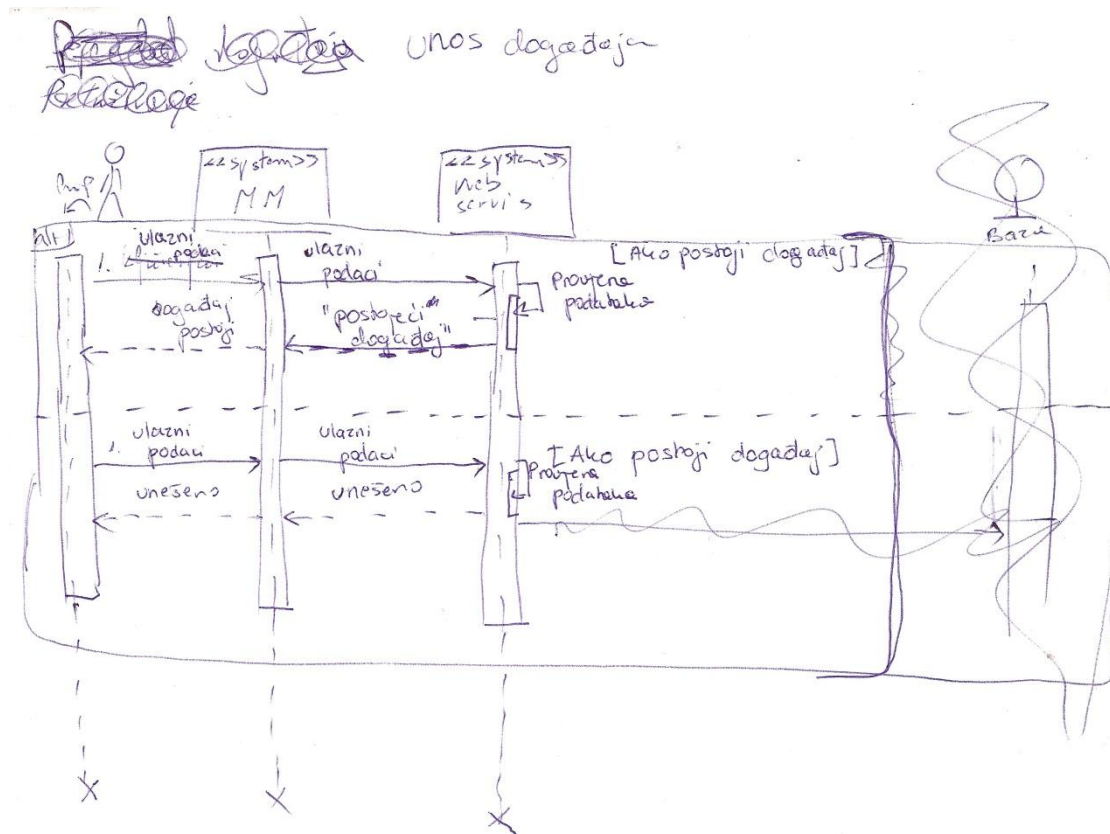 unos događaja
<<system>>
MM
<<system>>
web
servis
Baza
alt
ulazni
podaci
1.
ulazni
podaci
[Ako postoji događaj]
Provjera
podataka
događaj
postoji
"postojeći
događaj"
1.
ulazni
podaci
ulazni
podaci
[Ako postoji događaj]
Provjera
podataka
unešeno
unešeno
X
X
X